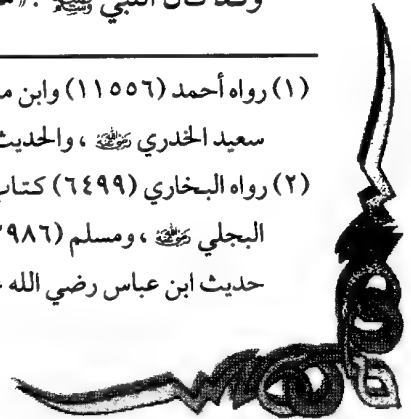 وقد قال النبي ﷺ : «
(١) رواه أحمد (١١٥٥٦) وابن م
سعيد الخدري رضي الله عنه ، والحديث
(٢) رواه البخاري (٦٤٩٩) كتاب
البجلي رضي الله عنه ، ومسلم (٢٩٨٦
حديث ابن عباس رضي الله ع